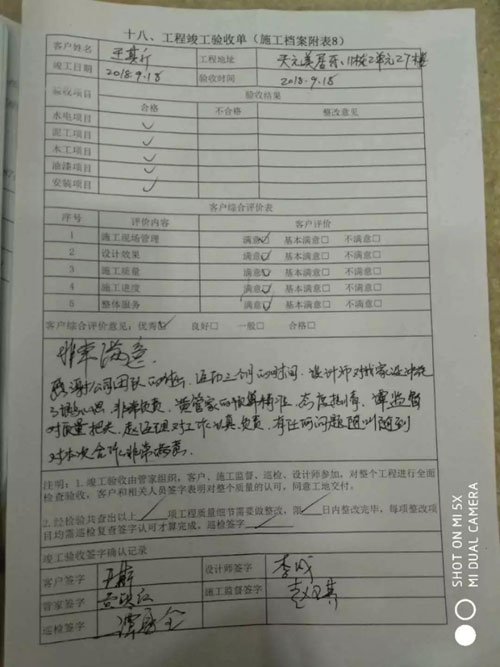 十八、工程竣工验收单（施工档案附表8）
客户姓名 工程地址 天元美居 11栋2单元27楼
竣工日期 2018.9.18 验收时间 2018.9.18
验收项目 验收结果
合格 不合格 整改意见
水电项目 ✓
泥工项目 ✓
木工项目 ✓
油漆项目 ✓
安装项目 ✓
客户综合评价表
序号 评价内容 客户评价
1 施工现场管理 满意☑ 基本满意□ 不满意□
2 设计效果 满意☑ 基本满意□ 不满意□
3 施工质量 满意☑ 基本满意□ 不满意□
4 施工进度 满意☑ 基本满意□ 不满意□
5 整体服务 满意☑ 基本满意□ 不满意□
客户综合评价意见：优秀☑ 良好□ 一般□ 合格□
非常满意
感谢公司团队的付出，这三个月的时间，设计师对我家
非常负责，管家的 态度很好，谭监督
对质量把关，赵经理对工作认真负责，有任何问题随叫随到
对本次合作非常满意
注明：1.竣工验收由管家组织，客户、施工监督、巡检、设计师参加，对整个工程进行全面
检查验收，客户和相关人员签字表明对整个质量的认可，同意工地交付。
2.经检验共查出以上 项工程质量细节需要做整改，限 日内整改完毕，每项整改项
目均需巡检复查签字认可才算完成，巡检签字
竣工验收签字确认记录
客户签字 设计师签字
管家签字 施工监督签字
巡检签字
SHOT ON MI 5X
MI DUAL CAMERA